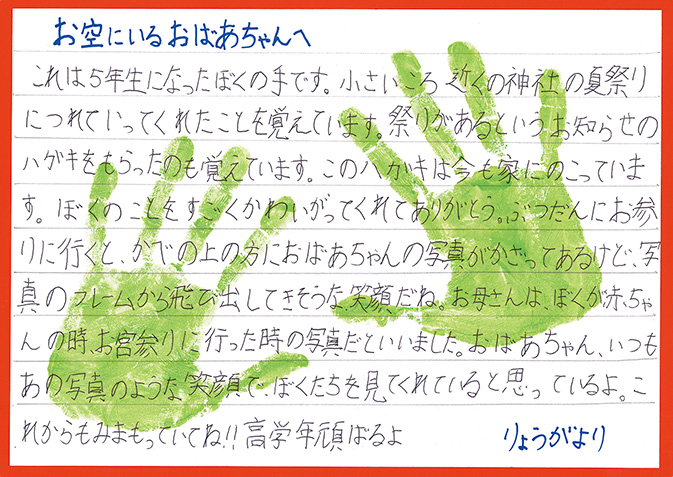 お空にいるおばあちゃんへ
これは5年生になったぼくの手です。小さいころ近くの神社の夏祭り
につれていってくれたことを覚えています。祭りがあるというお知らせの
ハガキをもらったのも覚えています。このハガキは今も家にのこっていま
す。ぼくのことをすごくかわいがってくれてありがとう。ぶつだんにお参
りに行くと、かべの上の方におばあちゃんの写真がかざってあるけど、写
真のフレームから飛び出してきそうな笑顔だね。お母さんは、ぼくが赤ちゃ
んの時、お宮参りに行った時の写真だといいました。おばあちゃん、いつも
あの写真のような笑顔で、ぼくたちを見てくれていると思っているよ。こ
れからもみまもっていてね!!高学年頑ばるよ
りょうがより